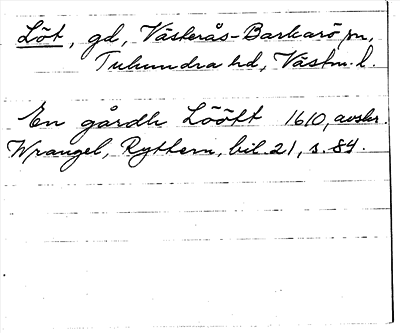 Löt, gd, Västerås-Barkarö sn,
Tuhundra hd, Västm. l.
En gårdh Löött 1610, avskr.
Wrangel, Ryttern, bil 21, s. 84.